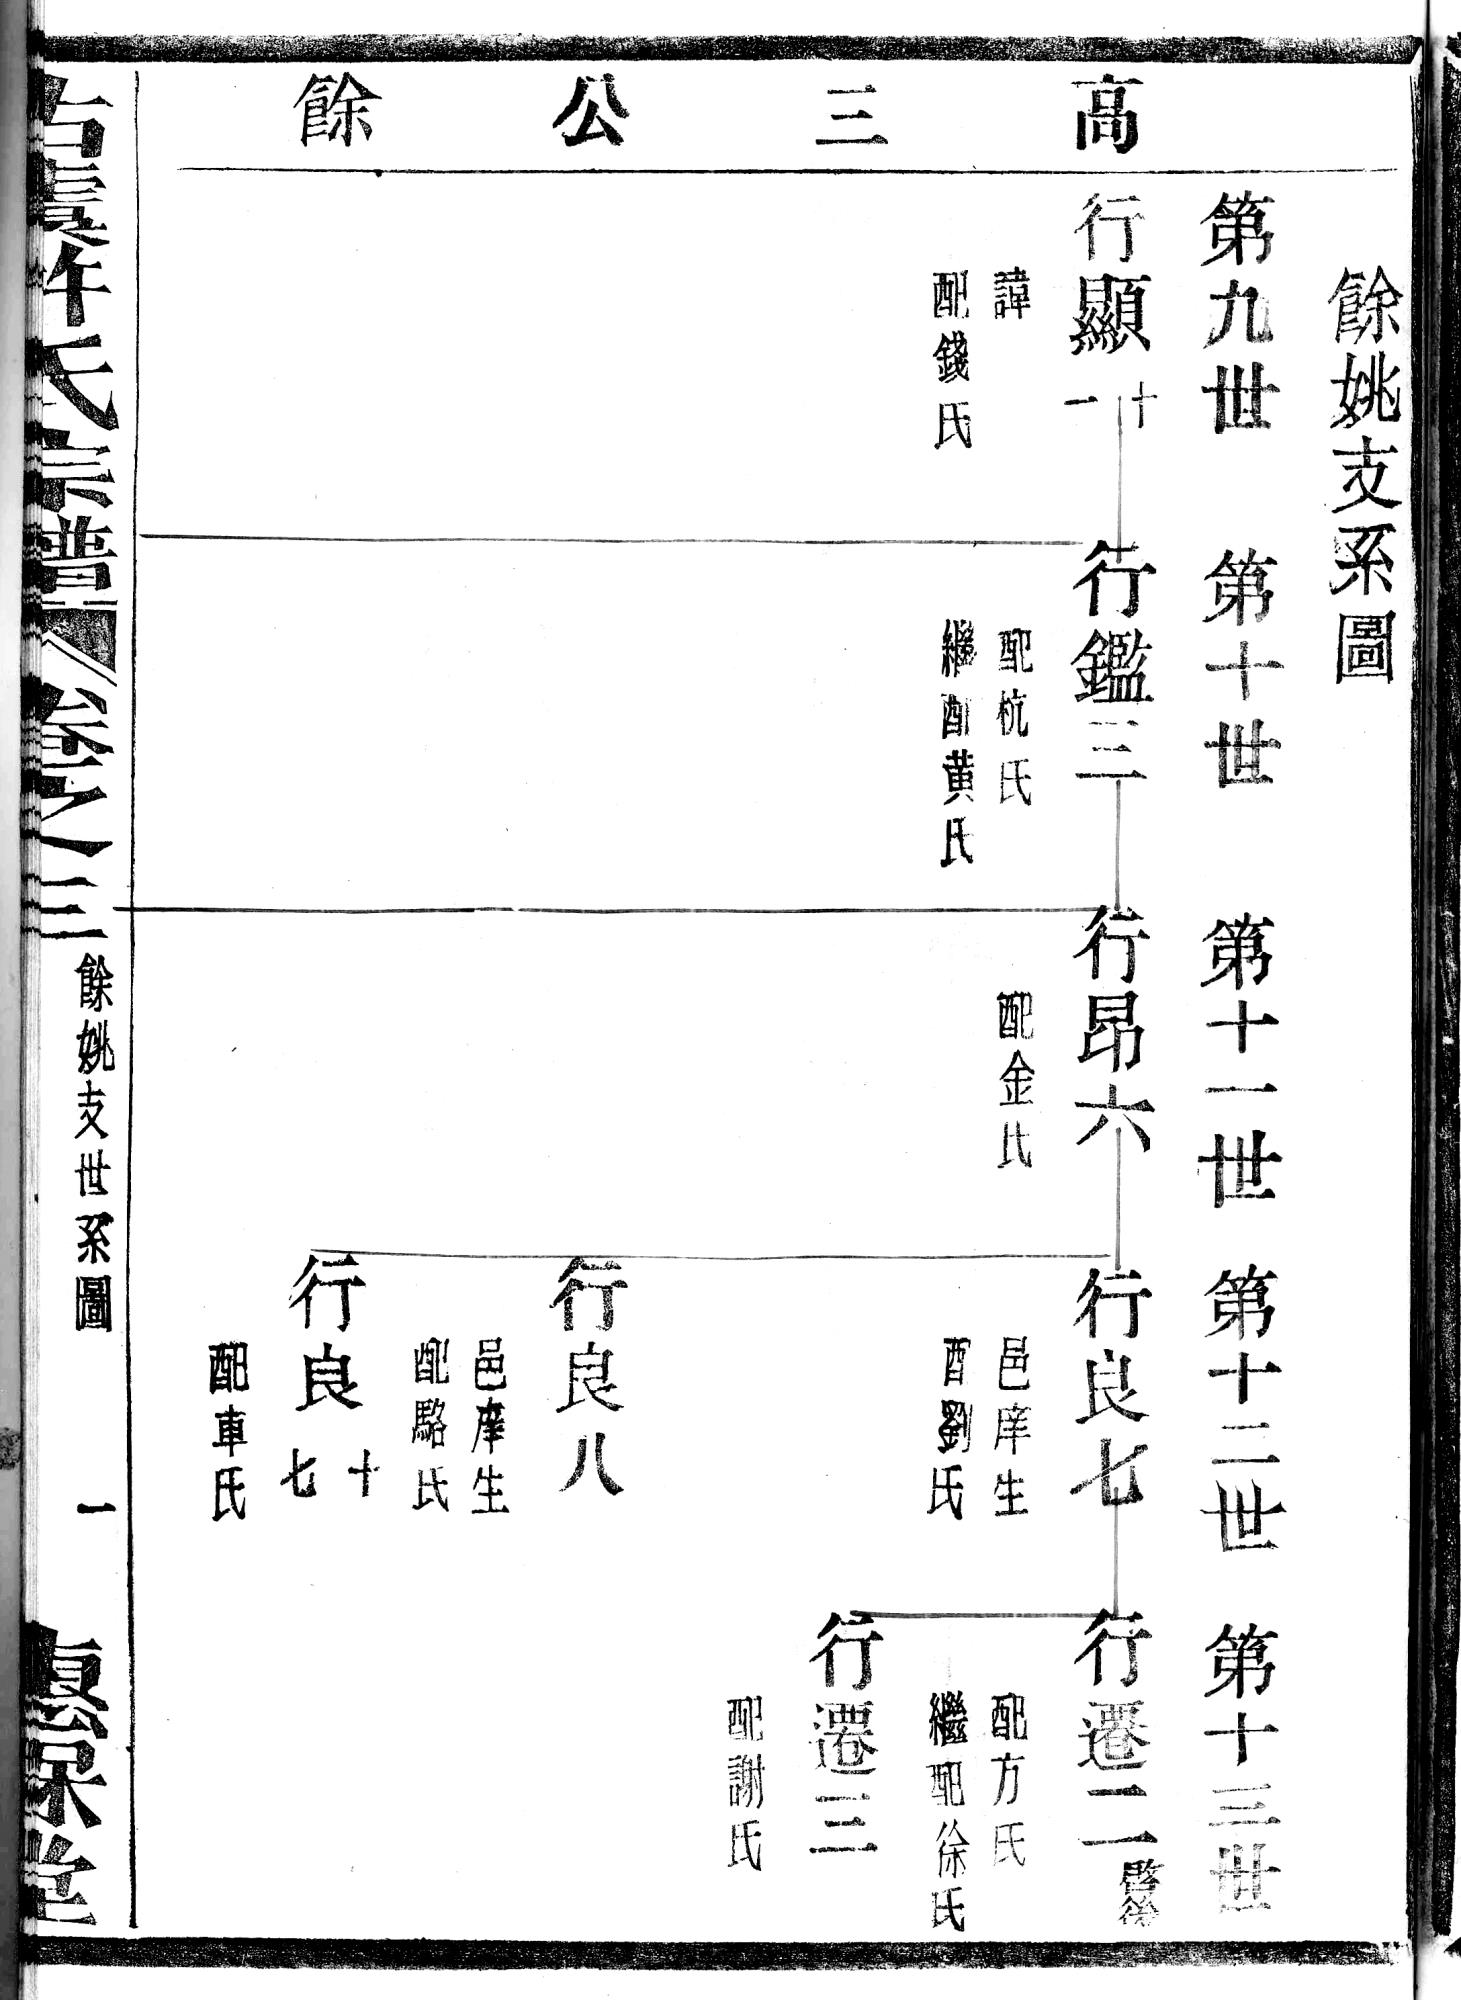 餘姚支系圖
高三公餘
第九世
行顯十一
諱
配錢氏
第十世
行鑑三
配杭氏
繼配黄氏
第十一世
行昂六
配金氏
第十二世
行良七
邑庠生
配劉氏
行良八
邑庠生
配駱氏
行良十七
配車氏
第十三世
行遷二
配方氏
繼配徐氏
行遷三
配謝氏
古虞許氏宗譜 卷之三
餘姚支世系圖
一
堂